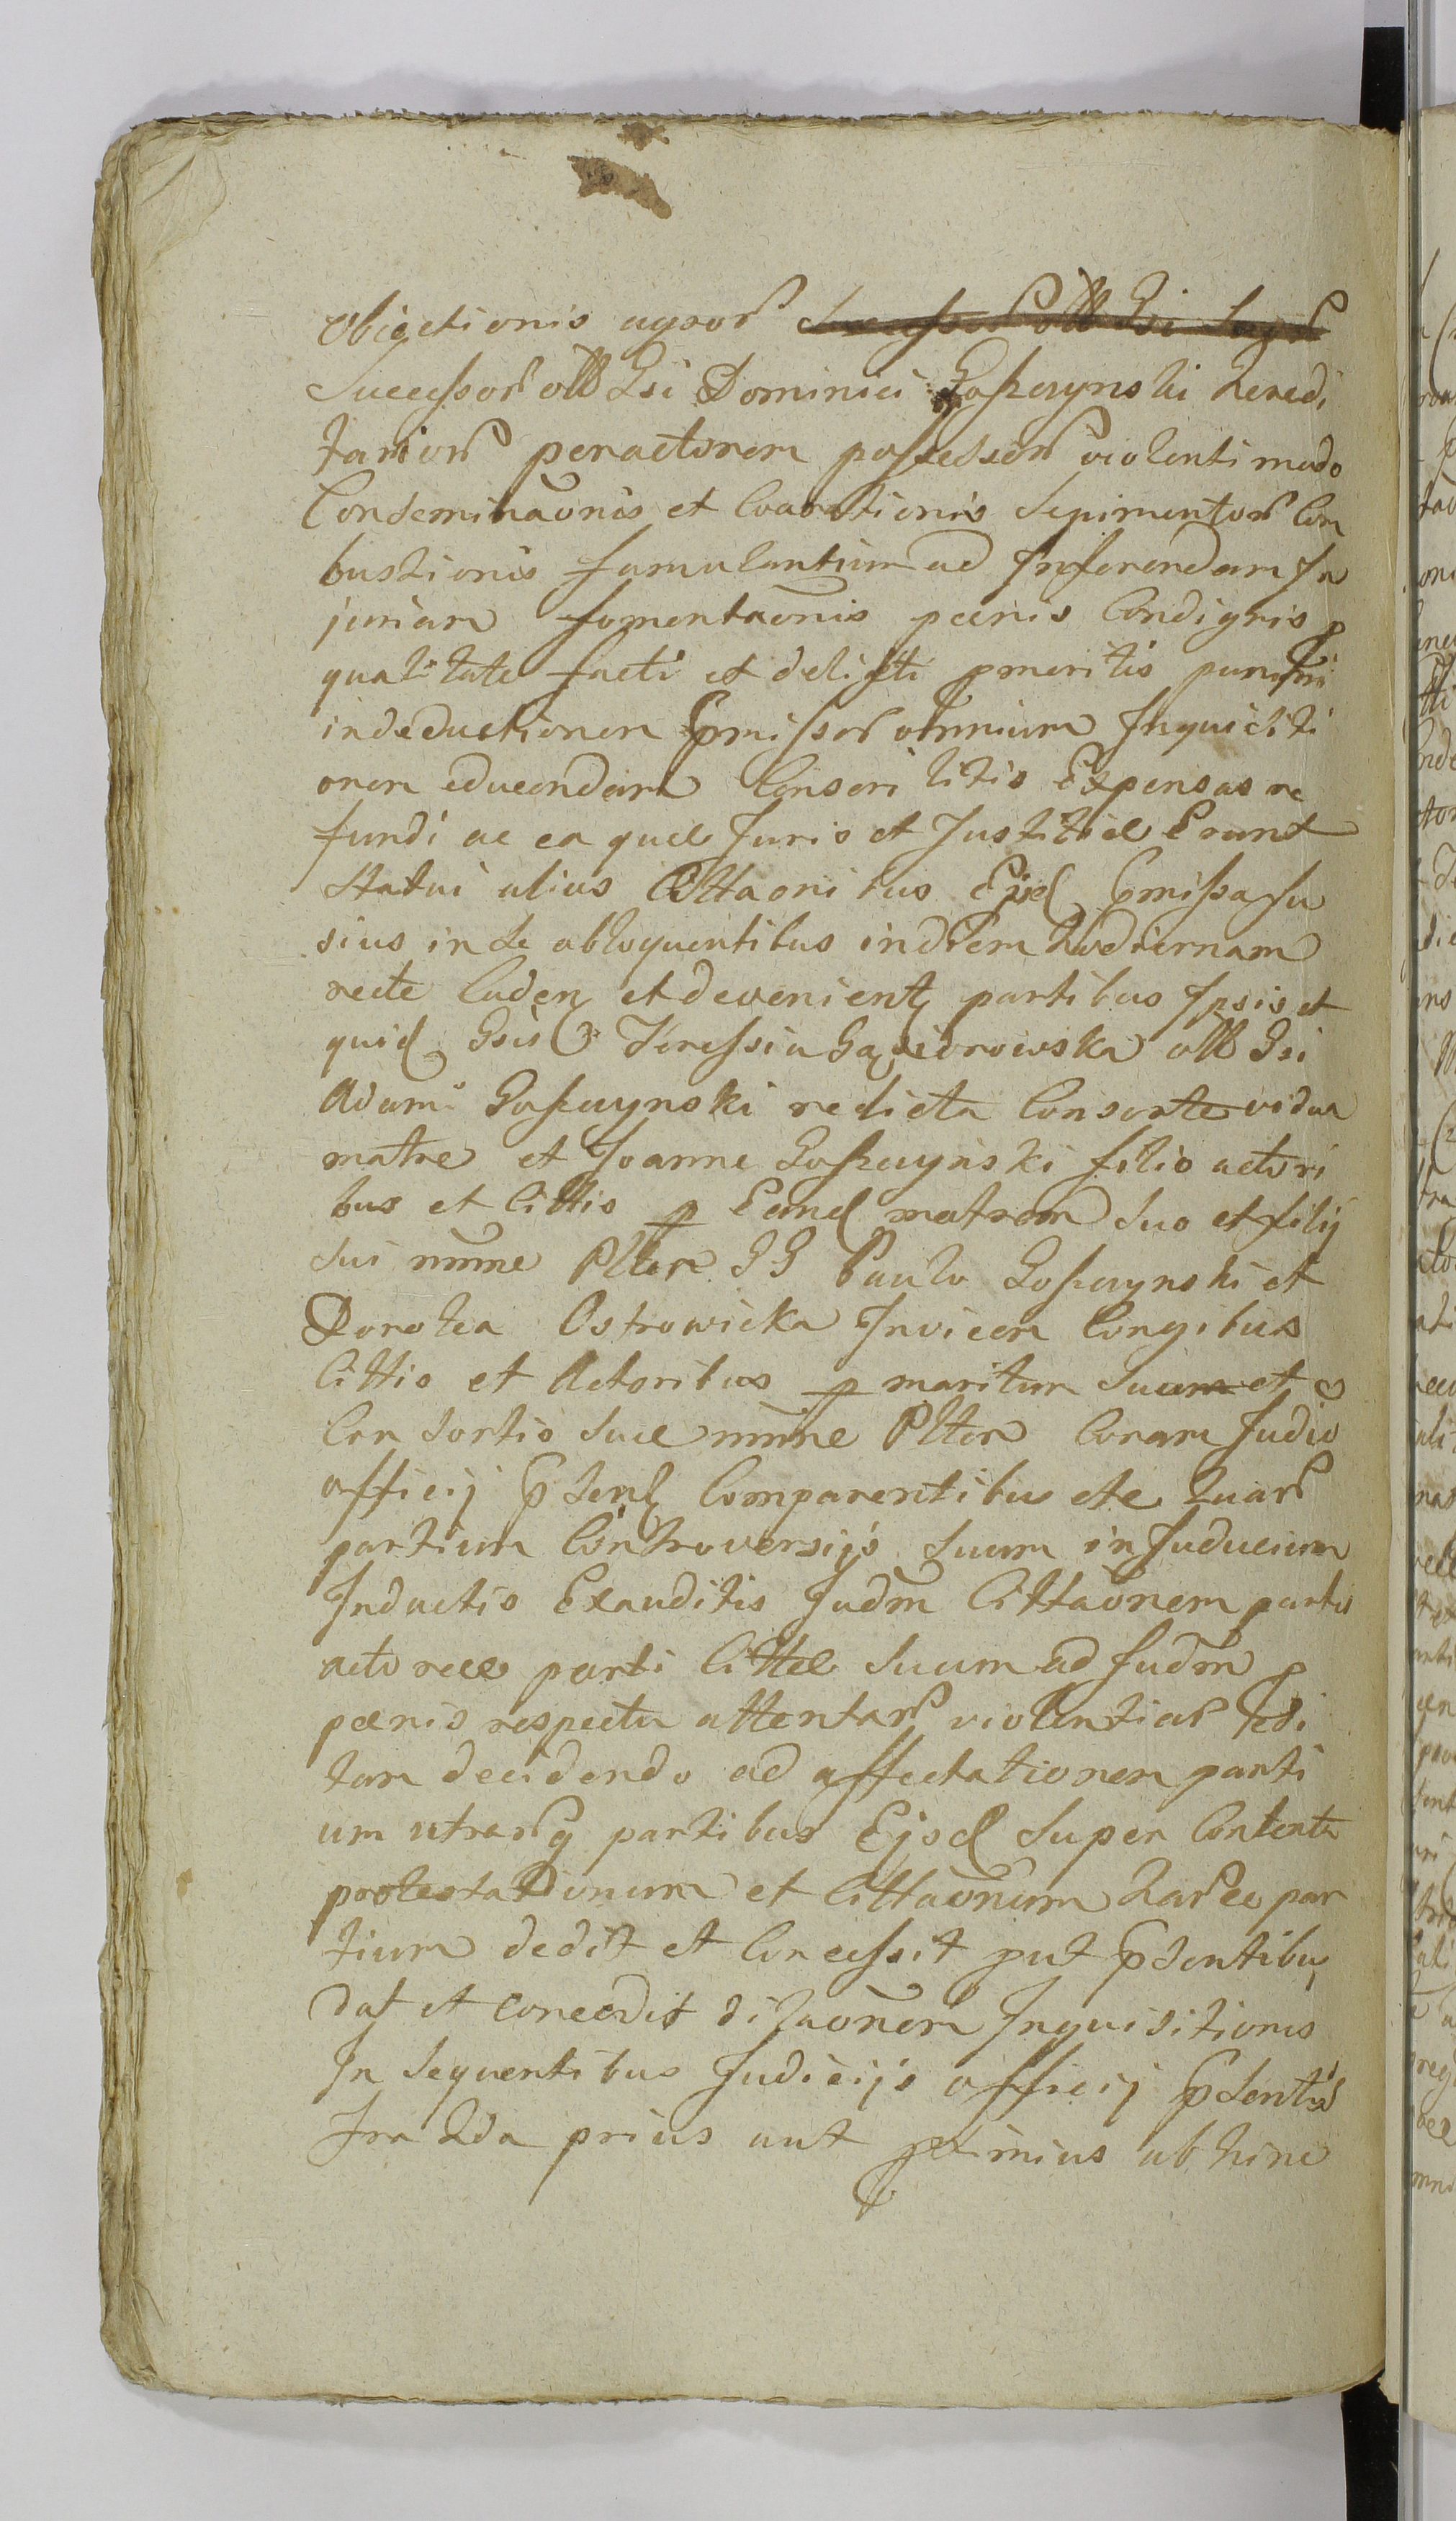 obiectionis agror Successor olb Gsi
Successor olb Gsi Dominici Goszczynski heredi
tarior per actorem possessor violenti modo
Conseminaōnis et Coarctionis Sepimentor Com
bustionis famulantium ad Inferendam In
juriam fomentaōnis pœnis Condignis p
qualitate facti et delicti pmeritis puniri
in deductionem pmissor omnium Inquisiti
onem educendam Censeri litis Expensas re
fundi ac ea quæ Juris et Justitiæ Erunt
Statui alias Cittaōnibus Eisd pmissa fu
sius in se obloquentibus in diem hodiernam
recte Caden et devenient partibus Ipsis et
quid Gsis Teressia Gąsiorowska olb Gsi
Adami Goszczynski relicta Consorte vidua
matre et Joanne Goszczynski filio actori
bus et Cittis p Eand matrem suo et filij
sui nmne Plter GG Paulo Goszczynski et
Dorothea Ostrowicka Invicem Congibus
Cittis et Actoribus p maritum Suum et
Consortis suæ nmne Plter Coram Judio
officij psent Comparentibus et e quar
partium Controversijs suum in Juducium
Inductis Exauditis Judm Cittaōnem partis
actoreæ parti Cittæ suum ad Judm p
pœnis respectu attentar violentiar edi
tam decidendo ad affectationem parti
um utrarq partibus Ejsd super Contenta
protestationum et Cittaōnum harce par
tium dedit et Concessit put psentibus
dat et concedit dilaōnem Inquisitionis
In sequentibus Judicijs officij psentis
fra 2da prius aut pximius ab hinc